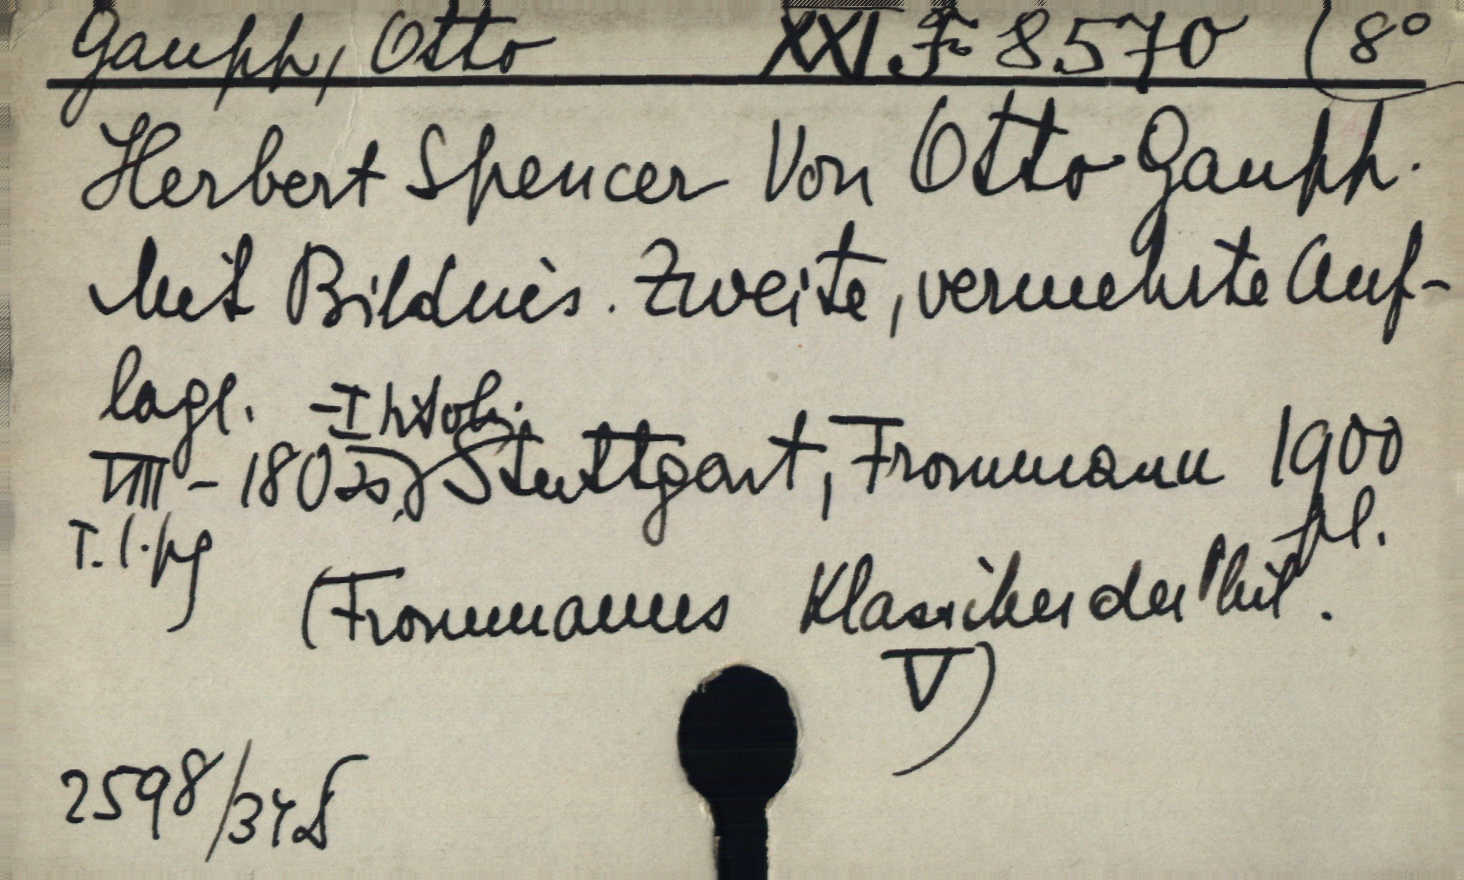 Gaupp, Otto XXI. F 8570 (8°
Herbert Spencer Von Otto Gaupp.
Mit Bildnis. Zweite, vermehrte Auf-
lage.
VIII - 180 s, Stuttgart, Frommann 1900
(Frommanns Klassiker der Phil.
V)
2598/34